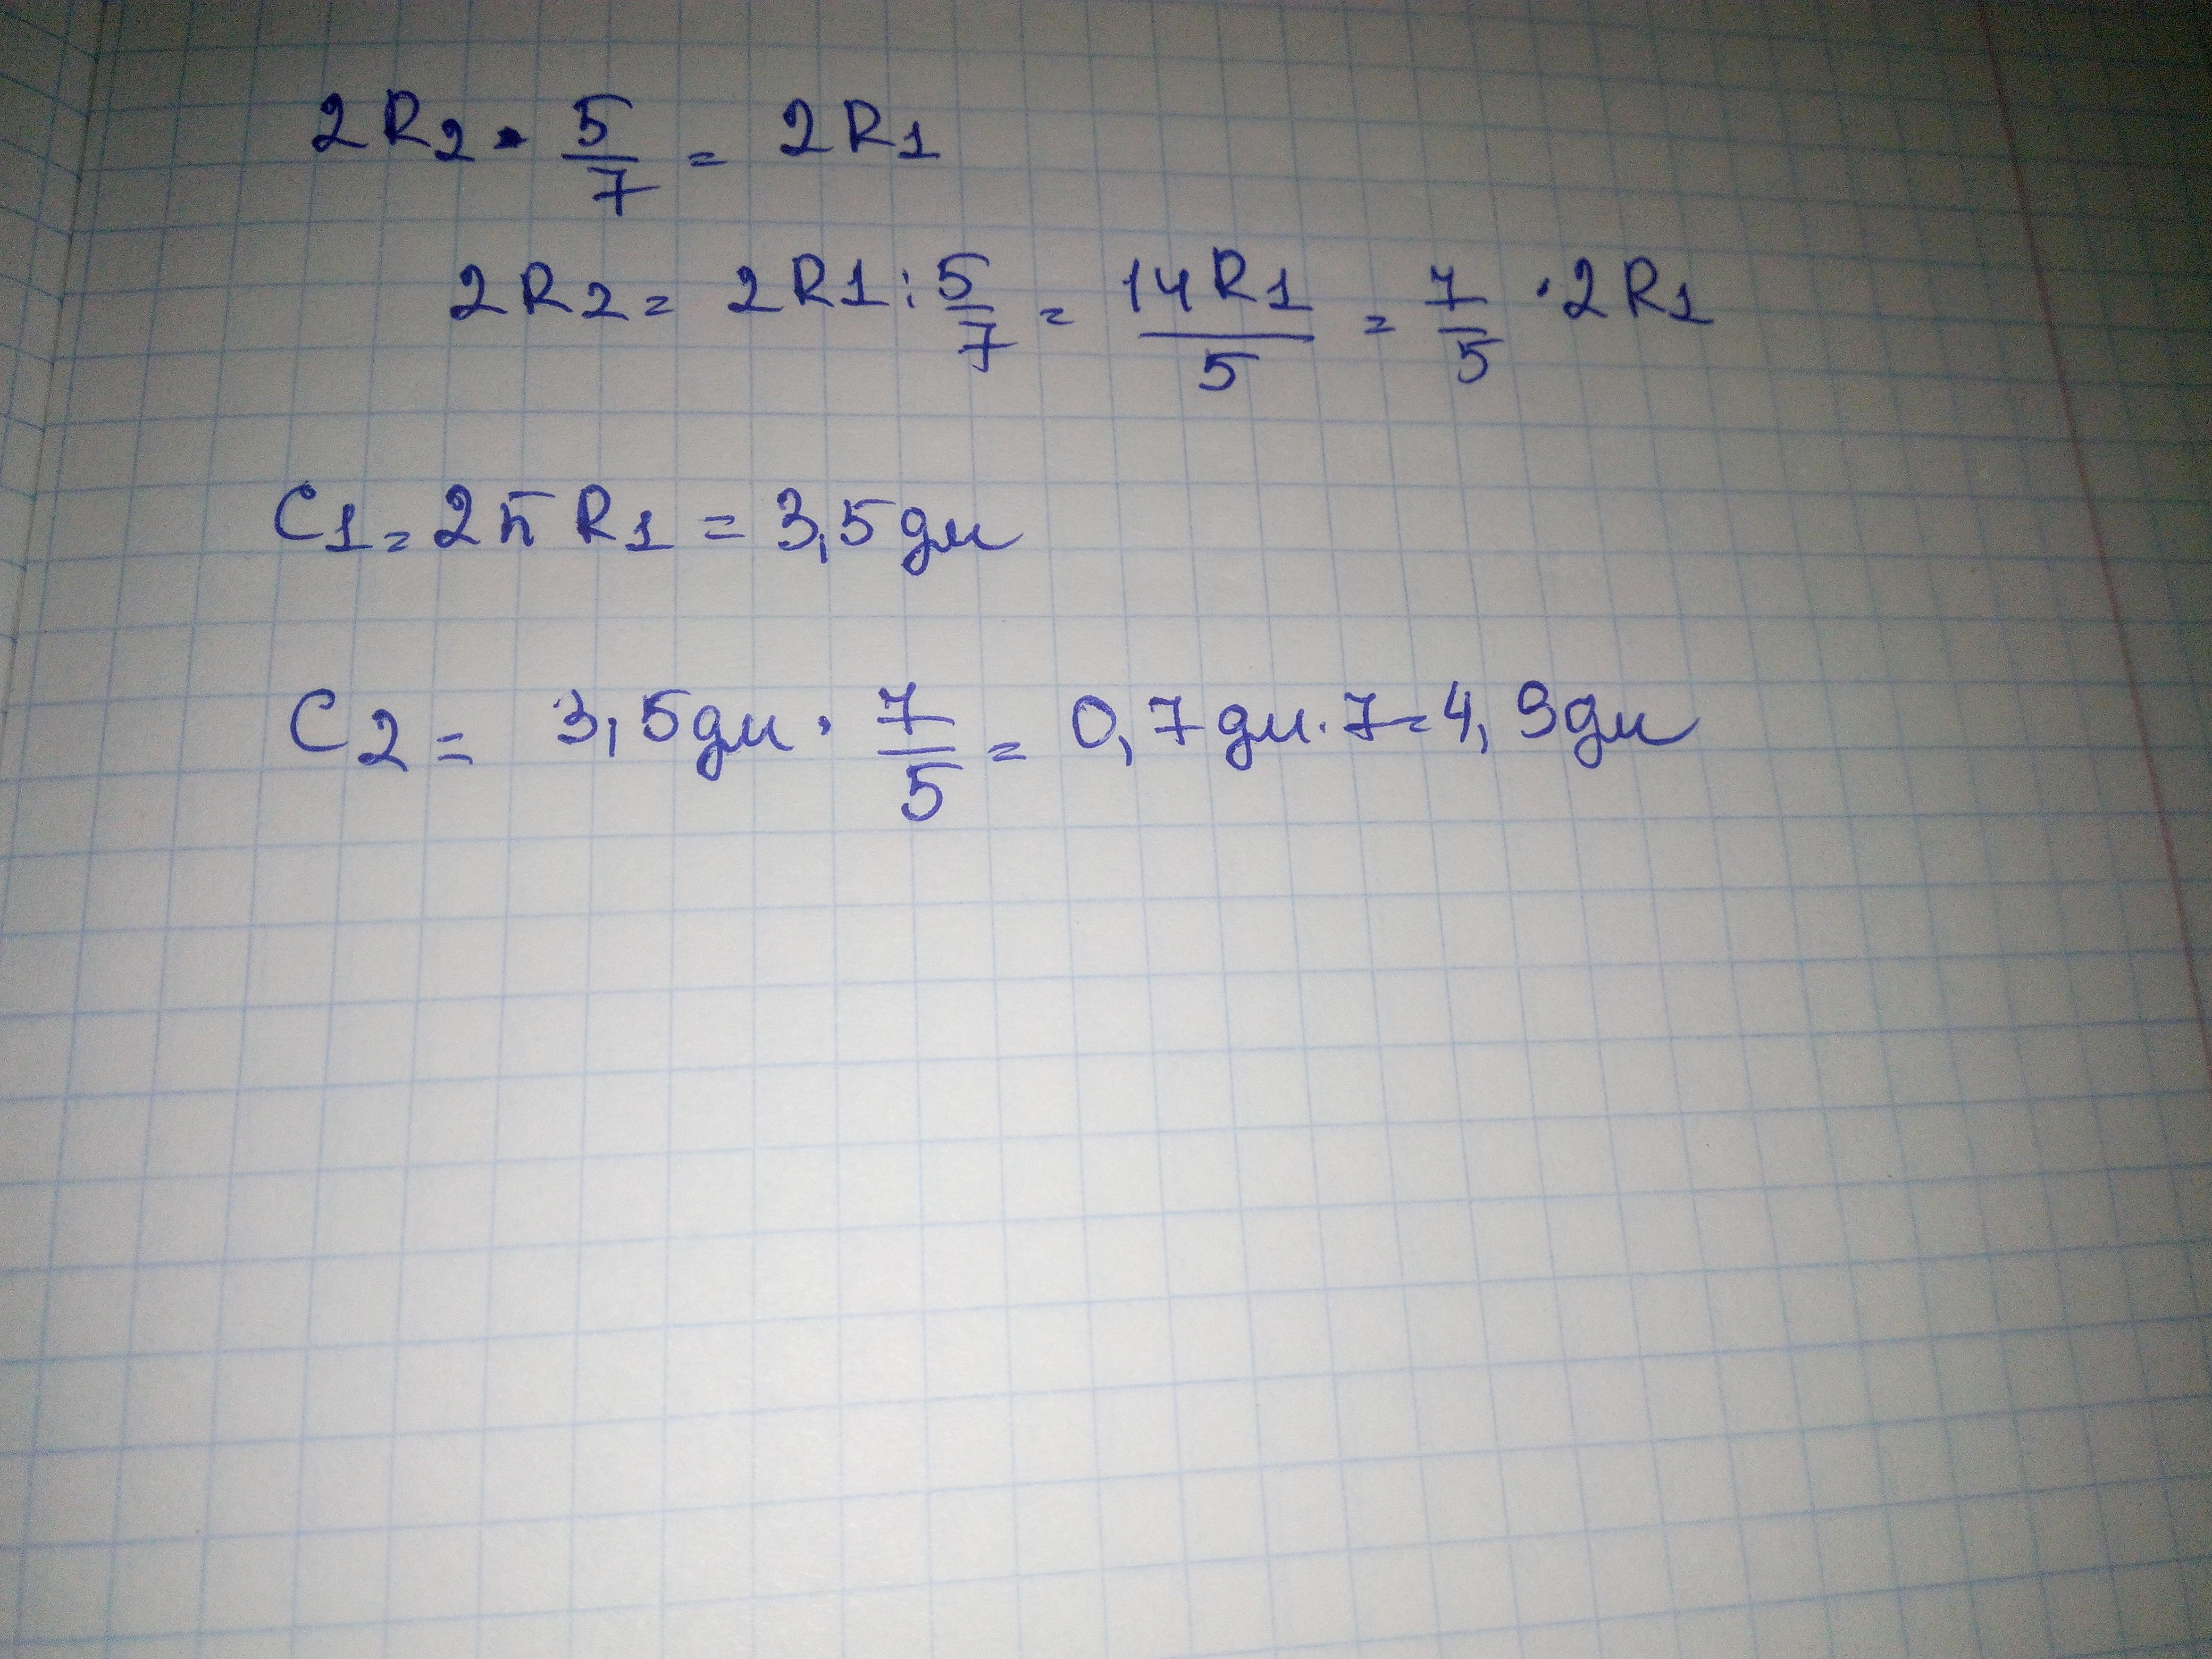 2R2 · 5/7 = 2R1
2R2 = 2R1 : 5/7 = 14R1/5 = 7/5 · 2R1
C1 = 2πR1 = 3,5дм
C2 = 3,5дм · 7/5 = 0,7дм · 7 = 4,9дм